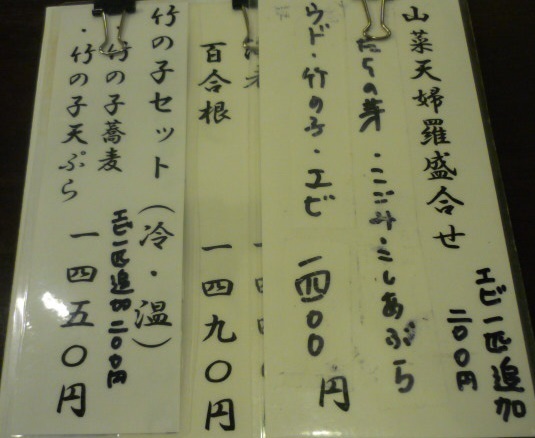 山菜天婦羅盛合せ
エビ一匹追加
二〇〇円
たらの芽・こごみ・こしあぶら
ウド・竹の子・エビ 一四〇〇円
百合根 一四九〇円
竹の子セット(冷・温)
竹の子蕎麦
エビ一匹追加二〇〇円
・竹の子天ぷら 一四五〇円